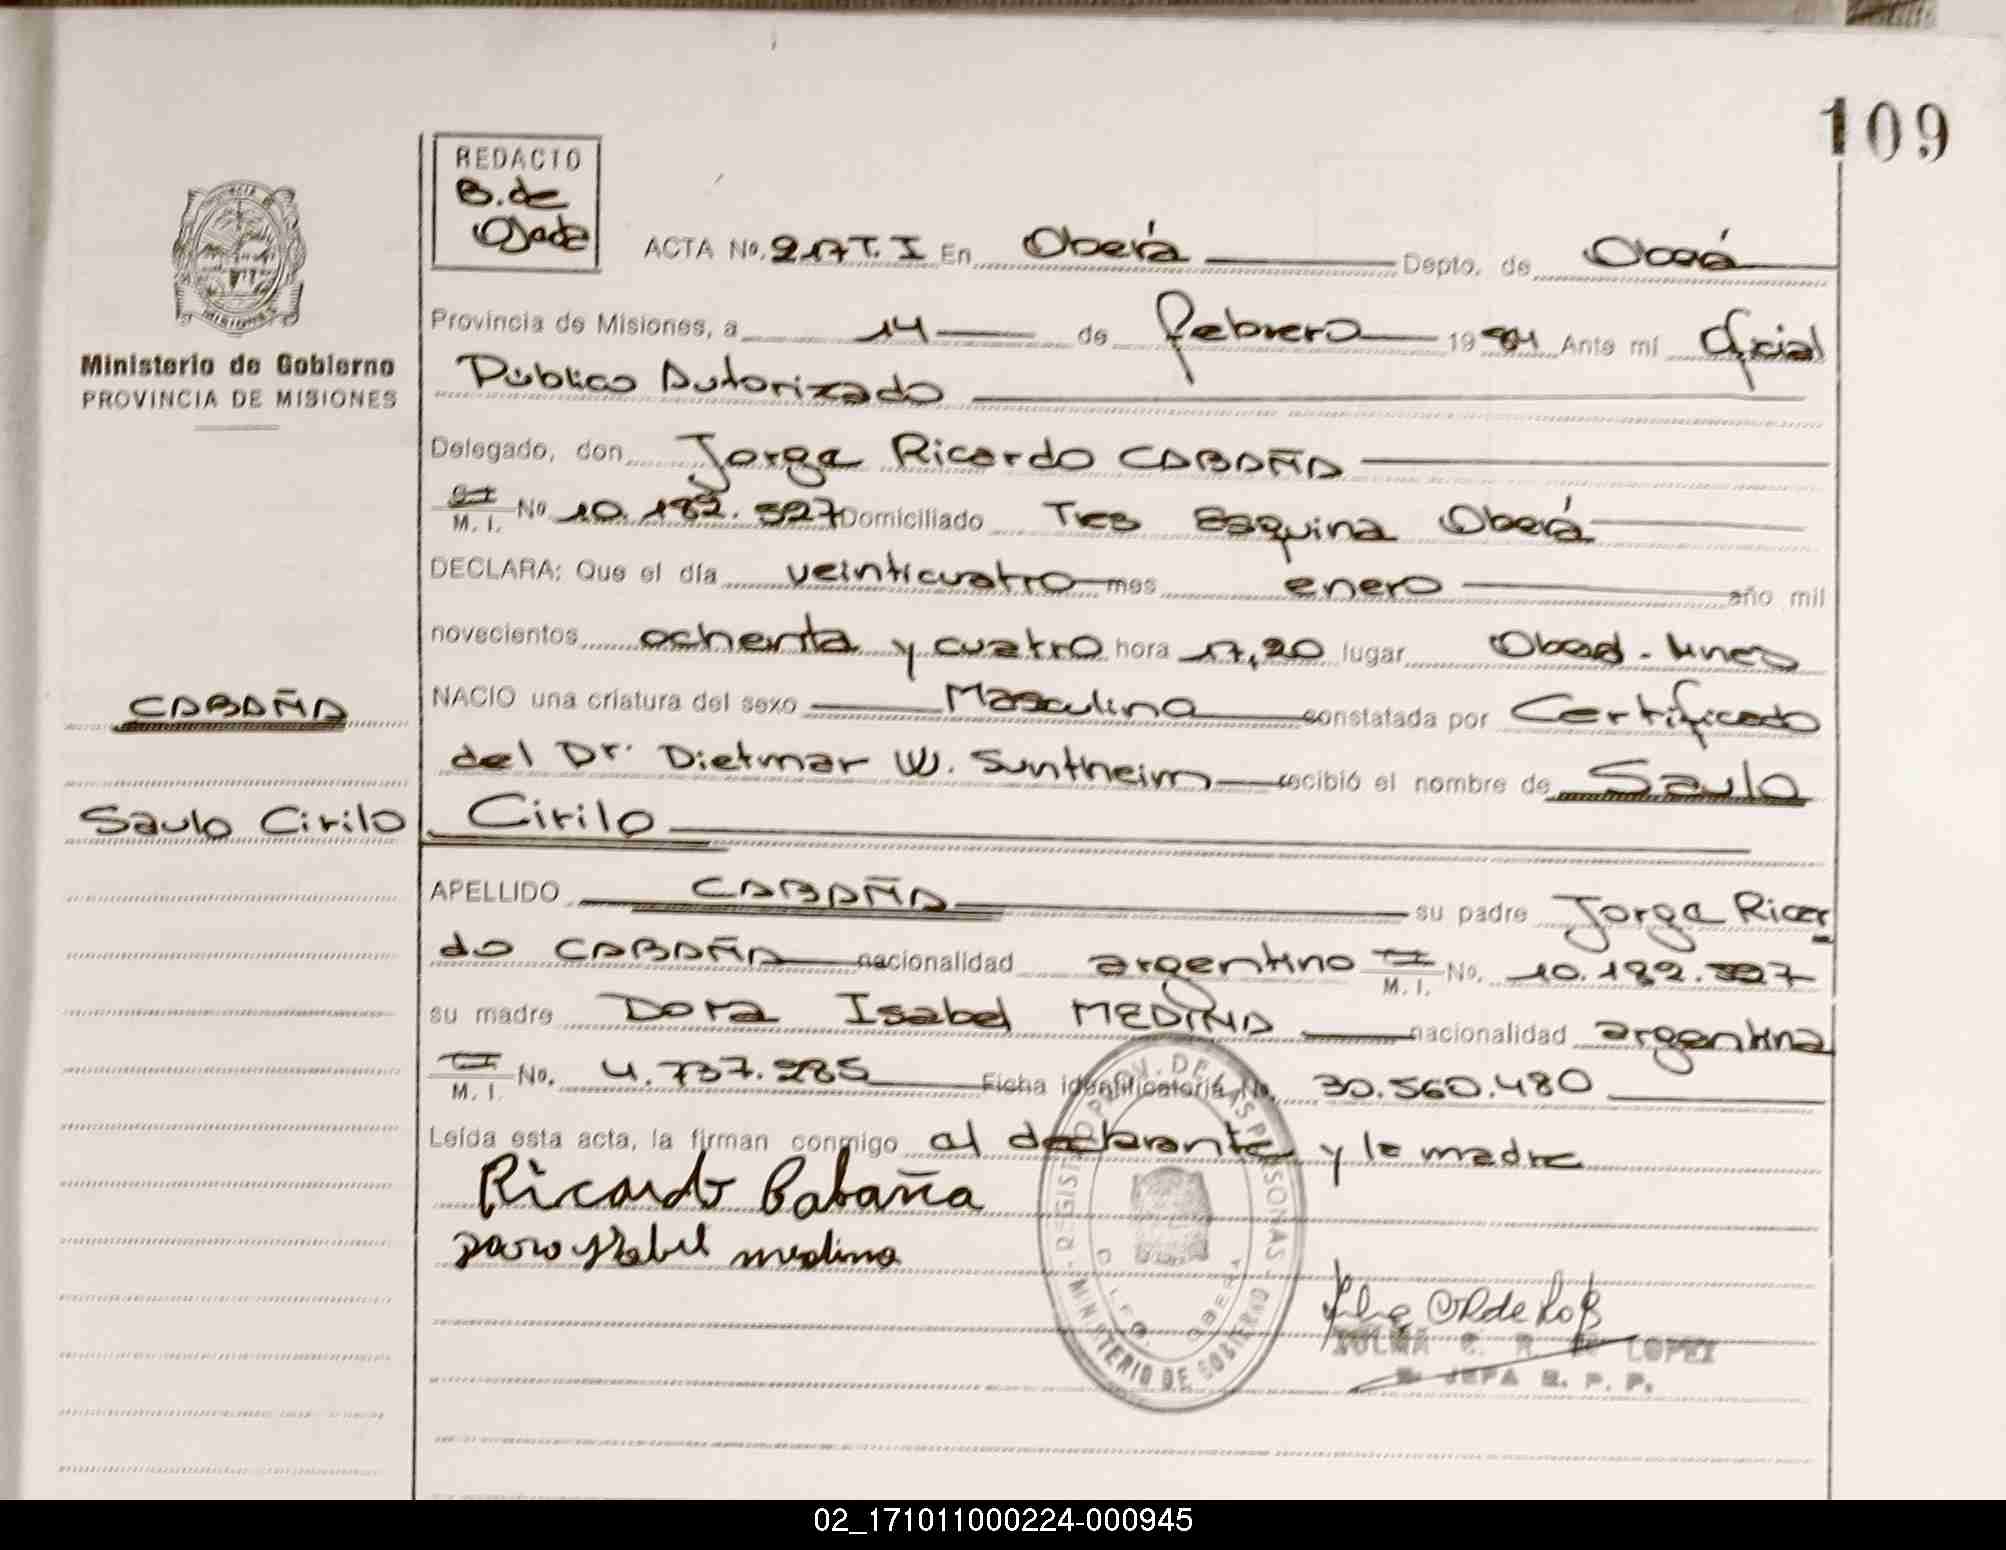 109
REDACTO
B. de
Ojeda
ACTA No. 217 T. I En Oberá Depto. de Oberá
Provincia de Misiones, a 14 de febrero 1984 Ante mí Oficial
Público Autorizado
Ministerio de Gobierno
PROVINCIA DE MISIONES
Delegado, don Jorge Ricardo CABAÑA
M. I. No 10.182.527 Domiciliado Tres Esquina Oberá
DECLARA: Que el día veinticuatro mes enero año mil
novecientos ochenta y cuatro hora 17,20 lugar Oberá - Mnes
NACIO una criatura del sexo Masculino constatada por Certificado
CABAÑA
del Dr. Dietmar W. Suntheim recibió el nombre de Saulo
Saulo Cirilo
Cirilo
APELLIDO CABAÑA su padre Jorge Ricar
do CABAÑA nacionalidad argentino M. I. No. 10.182.527
su madre Dora Isabel MEDINA nacionalidad argentina
M. I. No. 4.737.285 Ficha identificatoria No. 30.560.480
Leída esta acta, la firman conmigo el declarante y la madre
Ricardo Cabaña
Isabel medina
REGISTRO PROV. DE LAS PERSONAS
MINISTERIO DE GOBIERNO
OBERA
ZULMA C. R. DE LOPEZ
JEFA R. P. P.
02_171011000224-000945